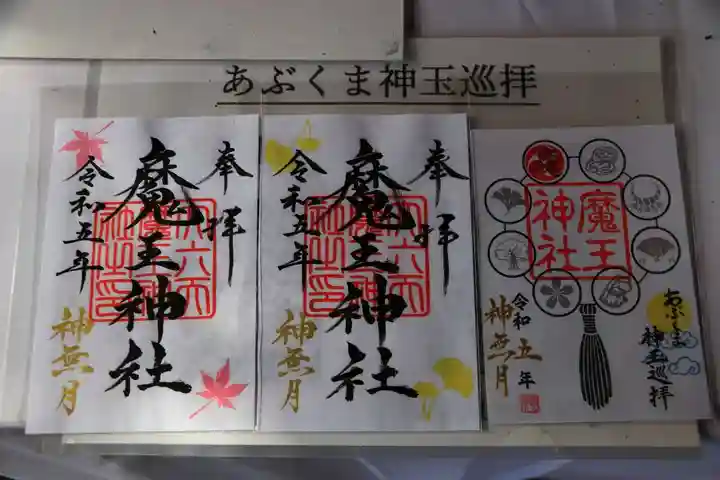 あぶくま神玉巡拝
奉拝
魔王神社
令和五年
神無月
奉拝
魔王神社
令和五年
神無月
魔王
神社
あぶくま
神玉巡拝
令和五年
神無月